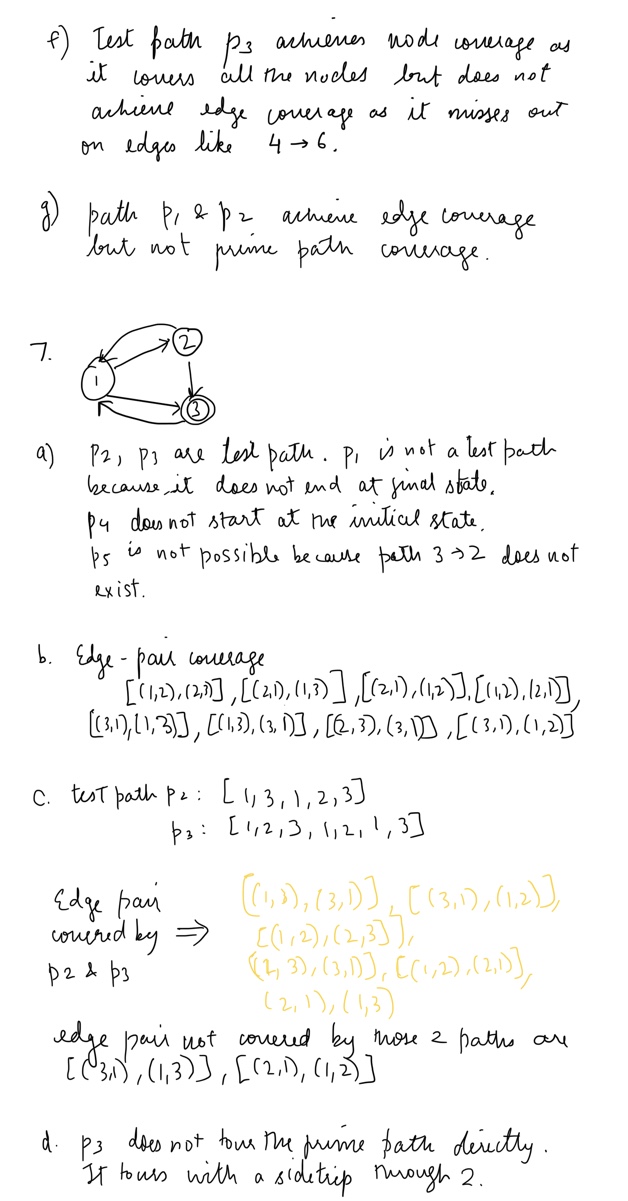 f) Test path p3 achieves node coverage as
it covers all the nodes but does not
achieve edge coverage as it misses out
on edges like 4 → 6.
g) path p1 & p2 achieve edge coverage
but not prime path coverage.
7.
2
1
3
a) P2, P3 are test path. p1 is not a test path
because it does not end at final state.
p4 does not start at the initial state.
p5 is not possible because path 3 → 2 does not
exist.
b. Edge-pair coverage
[(1,2),(2,3)], [(2,1),(1,3)], [(2,1),(1,2)], [(1,2),(2,1)],
[(3,1),(1,3)], [(1,3),(3,1)], [(2,3),(3,1)], [(3,1),(1,2)]
c. test path p2: [1,3,1,2,3]
p3: [1,2,3,1,2,1,3]
Edge pair
covered by ⇒
p2 & p3
[(1,3),(3,1)], [(3,1),(1,2)],
[(1,2),(2,3)],
(2,3),(3,1)], [(1,2),(2,1)],
(2,1),(1,3)
edge pair not covered by those 2 paths are
[(3,1),(1,3)], [(2,1),(1,2)]
d. p3 does not tour the prime path directly.
It tours with a sidetrip through 2.